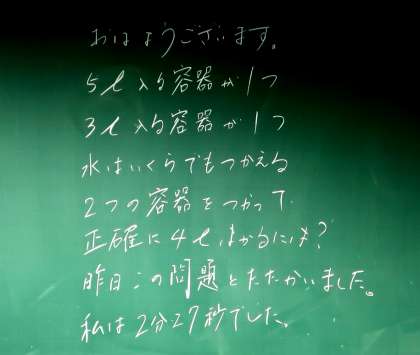 おはようございます。
5ℓ入る容器が1つ
3ℓ入る容器が1つ
水はいくらでもつかえる
2つの容器をつかって
正確に4ℓはかるには?
昨日この問題とたたかいました。
私は2分27秒でした。